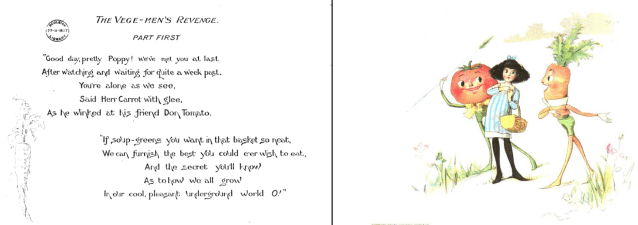 THE VEGE-MEN'S REVENGE.
PART FIRST
"Good day, pretty Poppy! we've met you at last
After watching and waiting for quite a week past.
You're alone as we see,
Said Herr Carrot with glee,
As he winked at his friend Don Tomato.
"If soup-greens you want in that basket so neat,
We can furnish the best you could e'er wish to eat,
And the secret you'll know
As to how we all grow
In our cool, pleasant underground world O!"